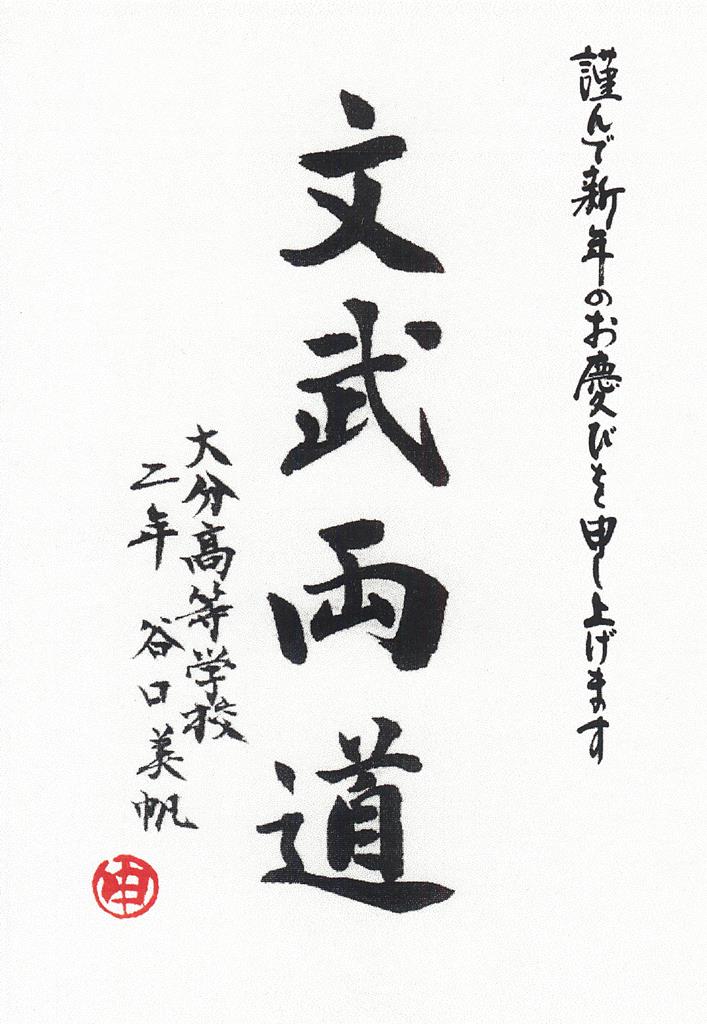 謹んで新年のお慶びを申し上げます
文武両道
大分高等学校
二年 谷口美帆
申